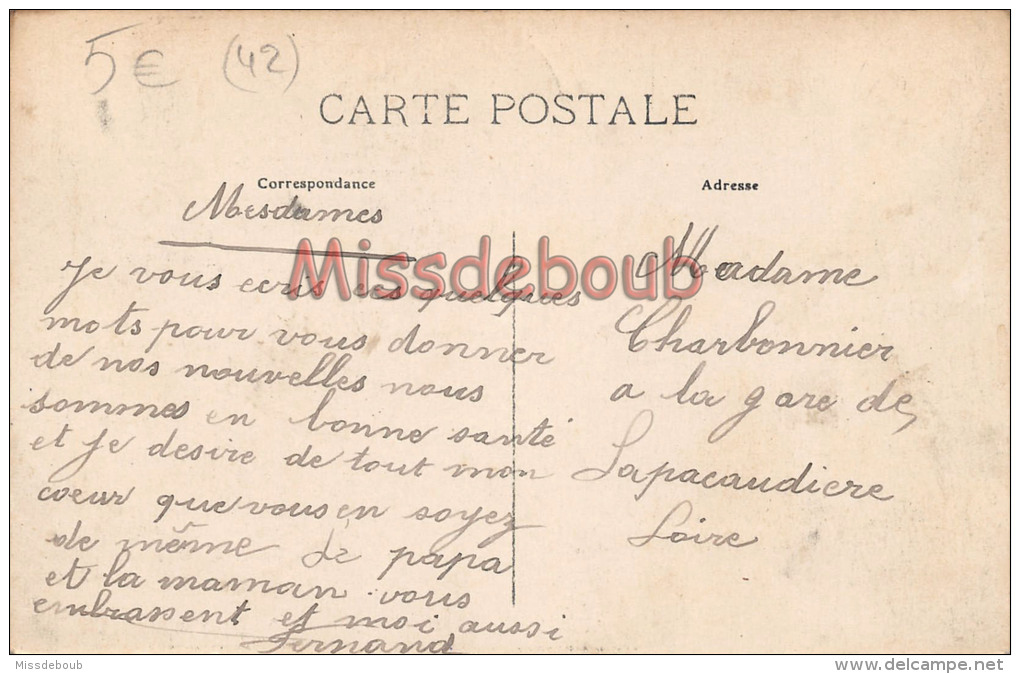 5 € (42)
CARTE POSTALE
Correspondance
Mesdames
Je vous ecris ces quelques
mots pour vous donner
de nos nouvelles nous
sommes en bonne santé
et je desire de tout mon
coeur que vous en soyez
de même Le papa
et la maman vous
embrassent et moi aussi
Fernand
Adresse
Madame
Charbonnier
a la gare de
Lapacaudiere
Loire
Missdeboub
Missdeboub
www.delcampe.net